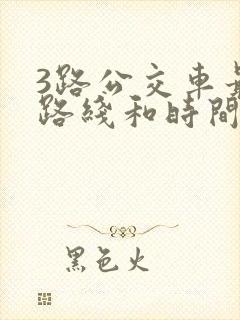 3路公交车
路綫和時間
黑色火